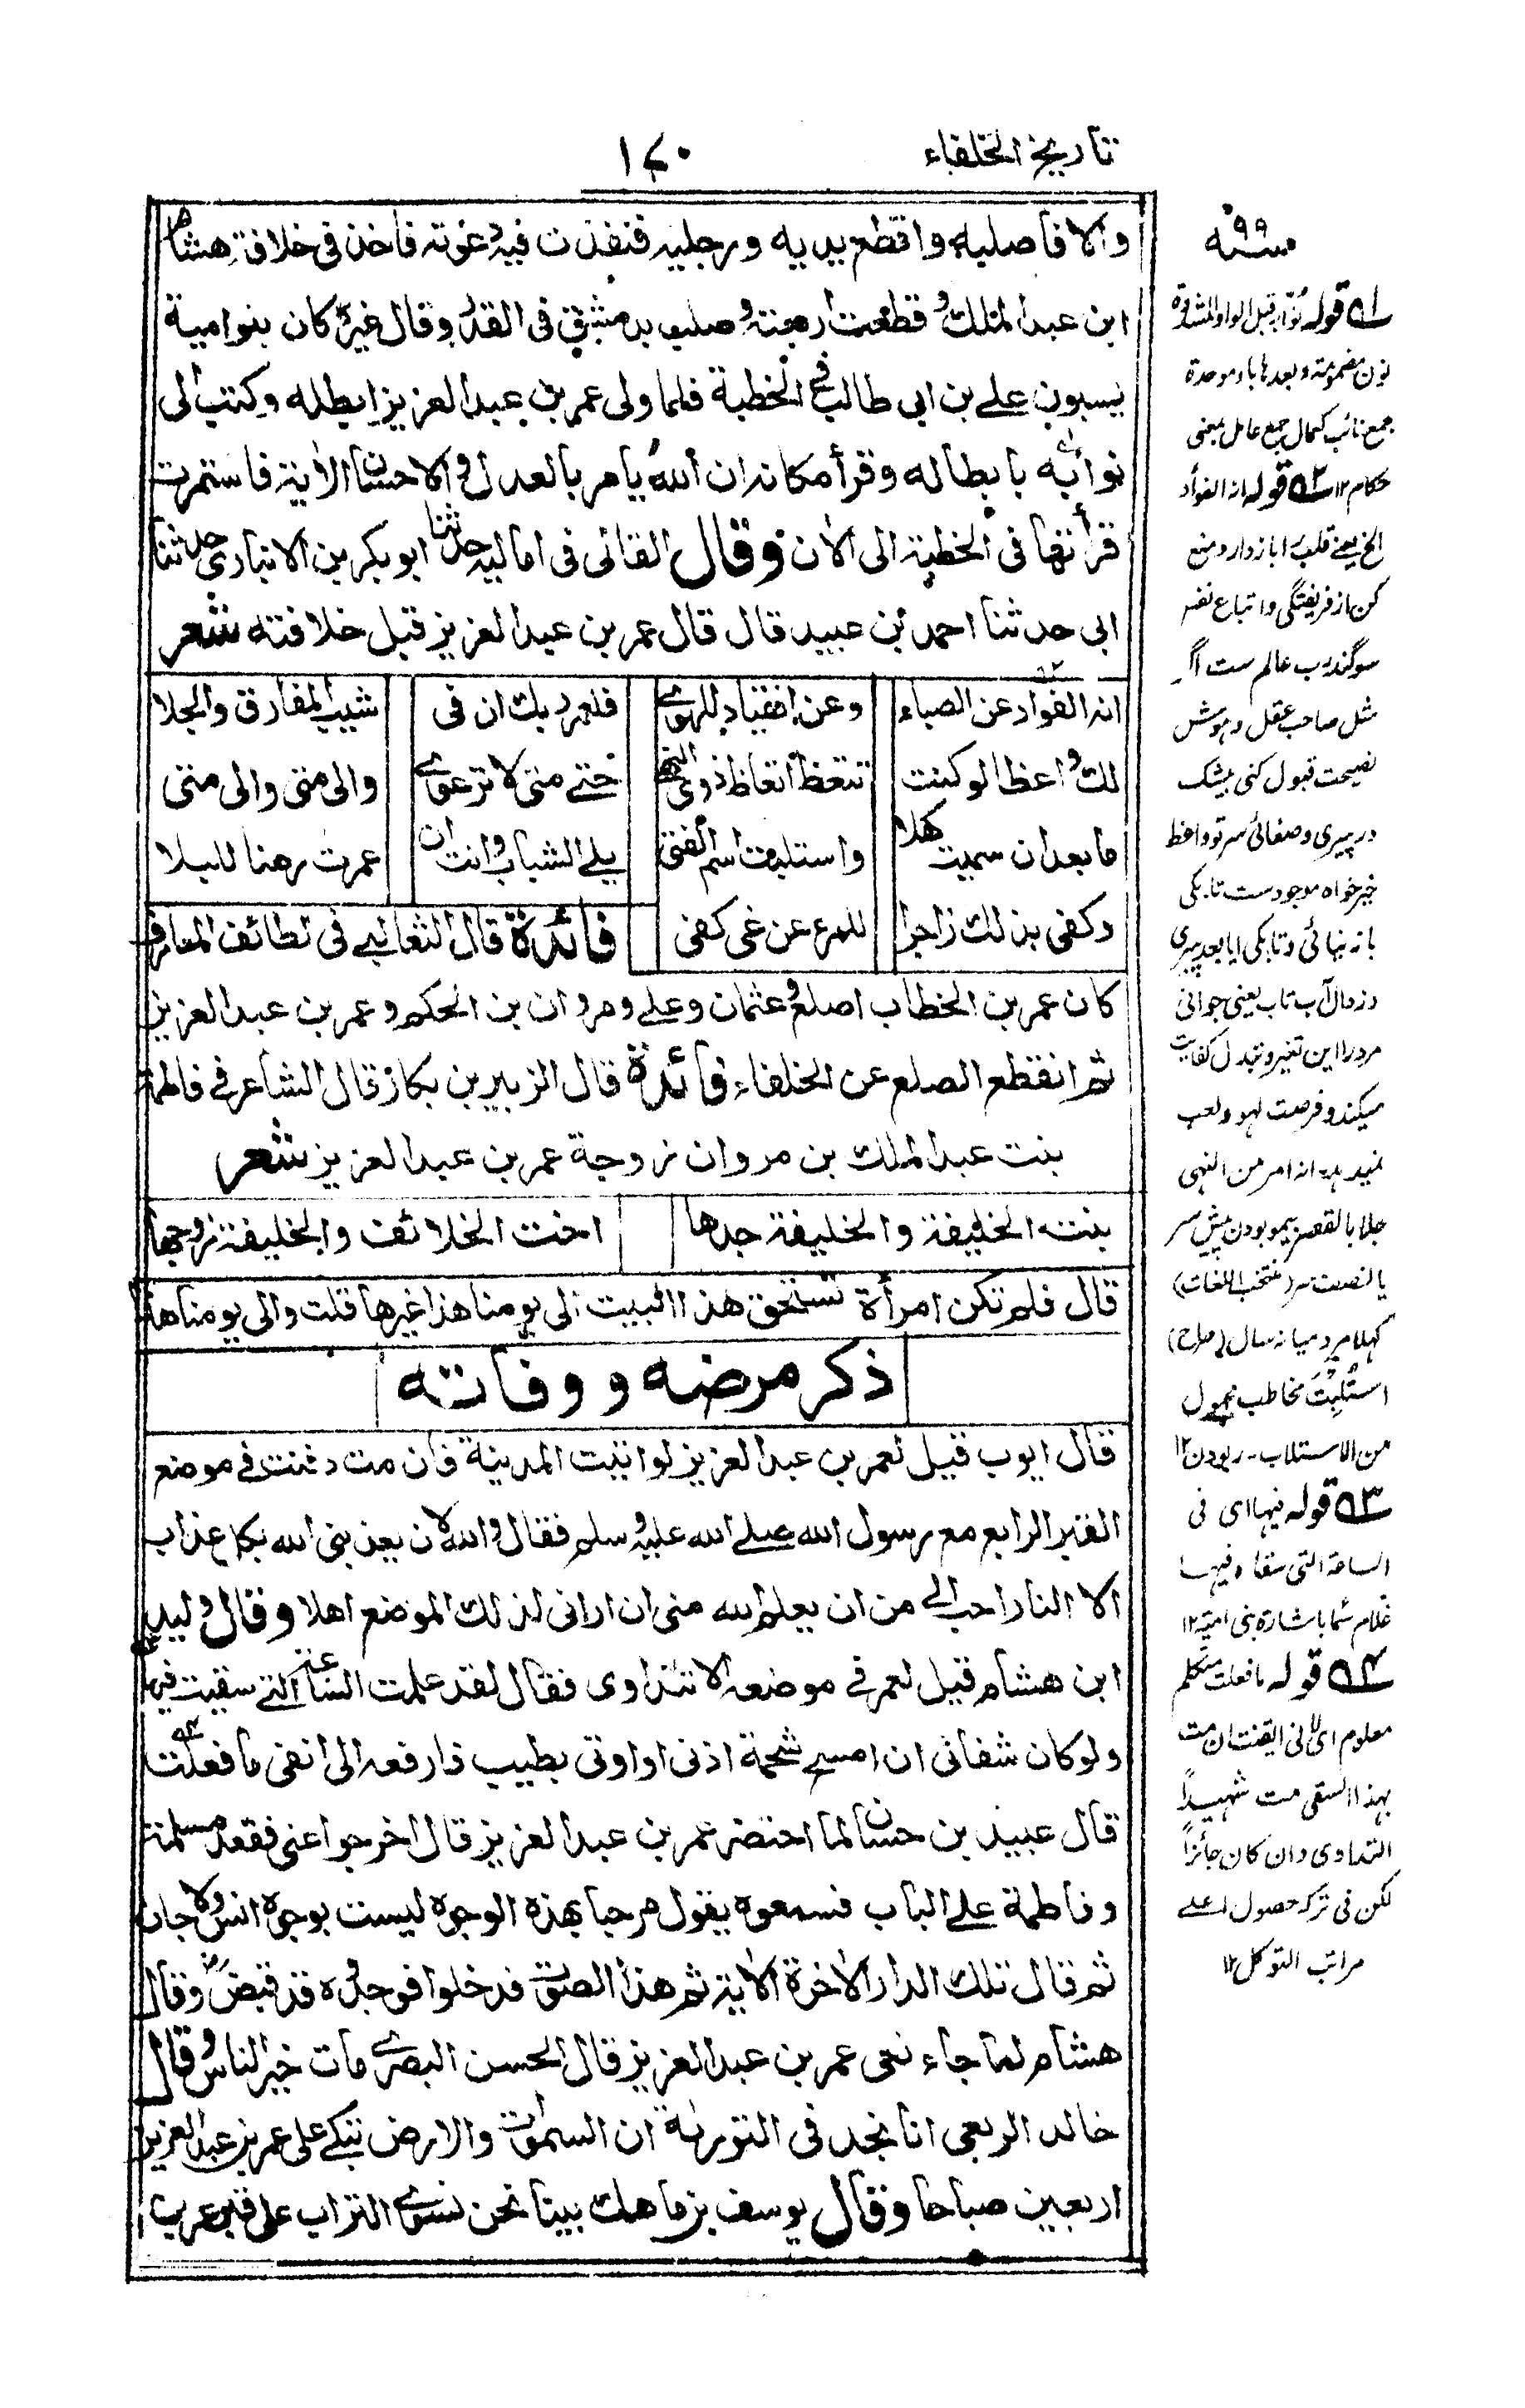 تاريخ الخلفاء
١٧٠
والا فاصلبه واقطع يديه ورجليه فنفذت فيه دعوته فاخذ فى خلافة هشام
ابن عبد الملك وقطعت اربعته وصلب بدمشق فى القدر وقال غيره كان بنو امية
يسبون على بن ابى طالب فى الخطبة فلما ولى عمر بن عبد العزيز ابطله وكتب الى
نوابه بابطاله وقرأ مكانه ان الله يامر بالعدل والاحسان الاية فاستمرت
قرأتها فى الخطبة الى الان وقال القالى فى اماليه حدثنا ابو بكر بن الانبارى حدثنا
ابى حدثنا احمد بن عبيد قال قال عمر بن عبد العزيز قبل خلافته شعر
انه الفواد عن الصباء وعن انقياد للهوى فلعمر ربك ان فى شيب المفارق والجلا
لك واعظا لو كنت تتعظ اتعاظ ذوى النهى حتى متى لا ترعوى والى متى والى متى
ما بعد ان سميت كهلا واستلبت اسم الفتى بلى الشباب وانت ان عمرت رهنا للبلا
وكفى بذلك زاجرا للمرء عن غى كفى
فائدة قال الثعالبى فى لطائف المعارف
كان عمر بن الخطاب اصلع وعثمان وعلى ومروان بن الحكم وعمر بن عبد العزيز
ثم انقطع الصلع عن الخلفاء فائدة قال الزبير بن بكار قال الشاعر فى فاطمة
بنت عبد الملك بن مروان زوجة عمر بن عبد العزيز شعر
بنت الخليفة والخليفة جدها اخت الخلائف والخليفة زوجها
قال فلم تكن امرأة تستحق هذا البيت الى يومنا هذا غيرها قلت والى يومنا هذا
ذكر مرضه ووفاته
قال ايوب قيل لعمر بن عبد العزيز لو اتيت المدينة فان مت دفنت فى موضع
القبر الرابع مع رسول الله صلى الله عليه وسلم فقال والله لان يعذبنى الله بكل عذاب
الا النار احب الى من ان يعلم الله منى ان ارانى لذلك الموضع اهلا وقال وليد
ابن هشام قيل لعمر فى موضعه الا تتداوى فقال لقد علمت الساعة التى سقيت فيها
ولو كان شفائى ان امسح شحمة اذنى او اوتى بطيب فارفعه الى انفى ما فعلت
قال عبيد بن حسان لما احتضر عمر بن عبد العزيز قال اخرجوا عنى فقعد مسلمة
وفاطمة على الباب فسمعوه يقول مرحبا بهذه الوجوه ليست بوجوه انس ولا جان
ثم قال تلك الدار الاخرة الاية ثم هذا الصوت فدخلوا فوجدوه قد قبض وقال
هشام لما جاء نعى عمر بن عبد العزيز قال الحسن البصرى مات خير الناس وقال
خالد الربعى انا نجد فى التورىة ان السموات والارض تبكى على عمر بن عبد العزيز
اربعين صباحا وقال يوسف بن ماهك بينا نحن نسوى التراب على قبر عمر بن
سنه ٩٩
١ قوله نوابه قبل الواو المشددة
نون مضمومة وبعدها باء موحدة
جمع نائب كعمال جمع عامل بمعنى
حكام ١٢ ٢ قوله انه الفواد
الخ يعنى قلب را باز دار ومنع
كن از فريفتگى واتباع نفس
سوگند رب عالم ست اگر
مثل صاحب عقل وهوش
نصيحت قبول كنى بيشك
در پيرى وصفائى سر تو واعظ
خير خواه موجود ست تا بكى
باز نيائى وتا بكى ايا بعد پيرى
در زوال آب وتاب يعنى جوانى
مرد را اين تغير وتبدل كفايت
ميكند وفرصت لهو ولعب
نميدهد انه امر من النهى
جلا بالقصر بيمو بودن پيش سر
يا نصف سر (منتخب اللغات)
كهلا مرد ميانه سال (صراح)
استلبت مخاطب مجهول
من الاستلاب - ربودن ١٢
٣ قوله فيها اى فى
الساعة التى سقاه فيها
غلام سما باشارة بنى امية ١٢
٤ قوله ما فعلت متكلم
معلوم اى لانى ايقنت ان مت
بهذا السقى مت شهيدا
التداوى وان كان جائزا
لكن فى تركه حصول اعلى
مراتب التوكل ١٢